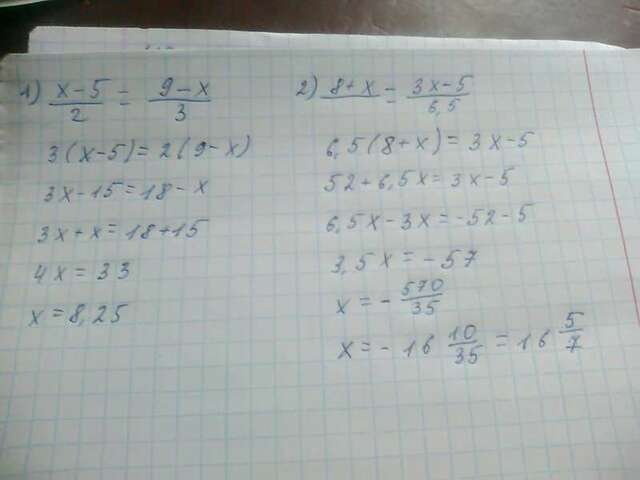 1) x-5/2 = 9-x/3
3(x-5)=2(9-x)
3x-15=18-x
3x+x=18+15
4x=33
x=8,25
2) 8+x = 3x-5/6,5
6,5(8+x)=3x-5
52+6,5x=3x-5
6,5x-3x=-52-5
3,5x=-57
x=-570/35
x=-16 10/35=16 5/7